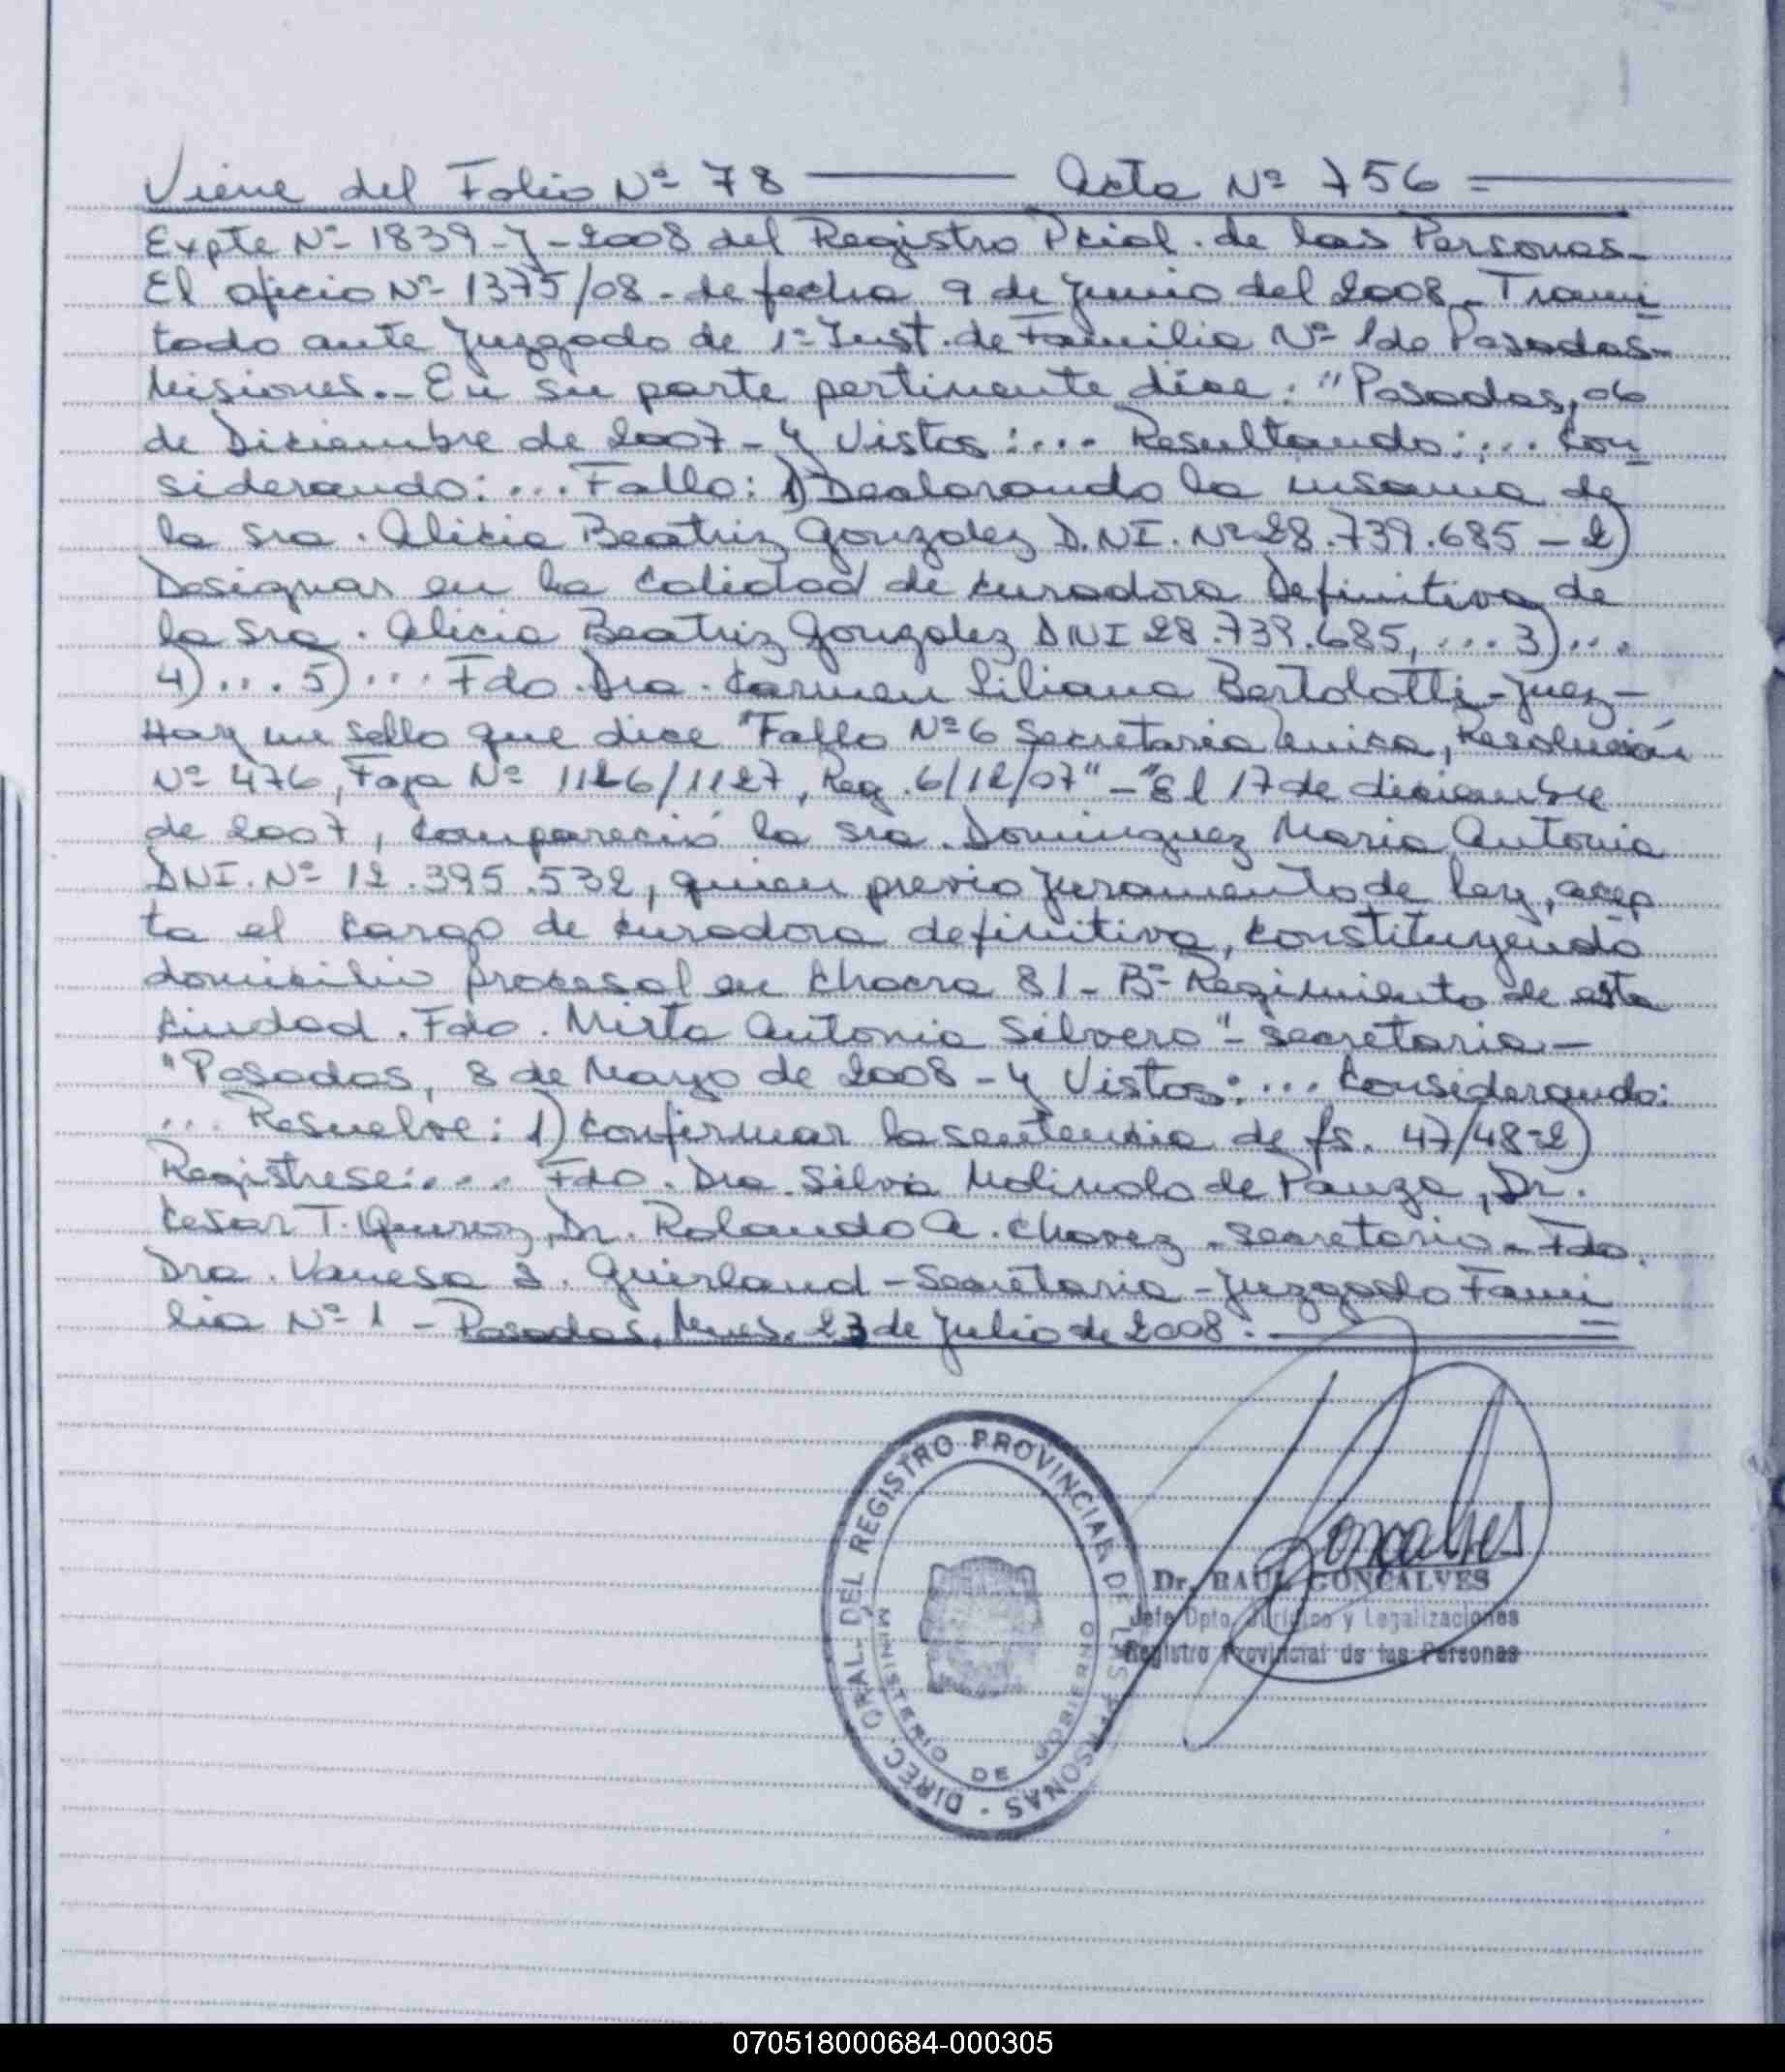 Viene del Folio Nº 78 — Acta Nº 756 =
Expte Nº 1839-J-2008 del Registro Pcial. de las Personas-
El oficio Nº 1375/08 - de fecha 9 de Junio del 2008 - Trami
tado ante Juzgado de 1º Inst. de Familia Nº 1 de Posadas-
Misiones.- En su parte pertinente dice: "Posadas, 06
de Diciembre de 2007 - Y Vistos:... Resultando:... Con
siderando: ... Fallo: 1) Declarando la insania de
la Sra. Alicia Beatriz Gonzalez D.N.I. Nº 28.739.685 - 2)
Designar en la calidad de curadora Definitiva de
la Sra. Alicia Beatriz Gonzalez DNI 28.739.685, ... 3)...
4)... 5)... Fdo. Dra. Carmen Liliana Bertolotti - Juez -
Hay un sello que dice "Fallo Nº 6 Secretaria Unica, Resolución
Nº 476, Foja Nº 1126/1127, Reg. 6/12/07" - "El 17 de diciembre
de 2007, compareció la Sra. Dominguez Maria Antonia
DNI. Nº 12.395.532, quien previo juramento de ley, acep
ta el cargo de curadora definitiva, constituyendo
domicilio procesal en Chacra 81 - Bº Regimiento de esta
Ciudad. Fdo. Mirta Antonia Silvero" - secretaria -
"Posadas, 8 de Mayo de 2008 - Y Vistos: ... Considerando:
... Resuelve: 1) Confirmar la sentencia de fs. 47/48 - 2)
Registrese:... Fdo. Dra. Silvia Molinolo de Pauza, Dr.
Cesar T. Queiroz, Dr. Rolando A. Chavez - secretario - Fdo.
Dra. Vanesa S. Guirland - Secretaria - Juzgado Fami
lia Nº 1 - Posadas, Mnes. 23 de Julio de 2008.
DIREC. GRAL. DEL REGISTRO PROVINCIAL DE LAS PERSONAS
MINISTERIO DE GOBIERNO
Goncalves
Dr. RAUL GONCALVES
Jefe Dpto. Jurídico y Legalizaciones
Registro Provincial de las Personas
070518000684-000305